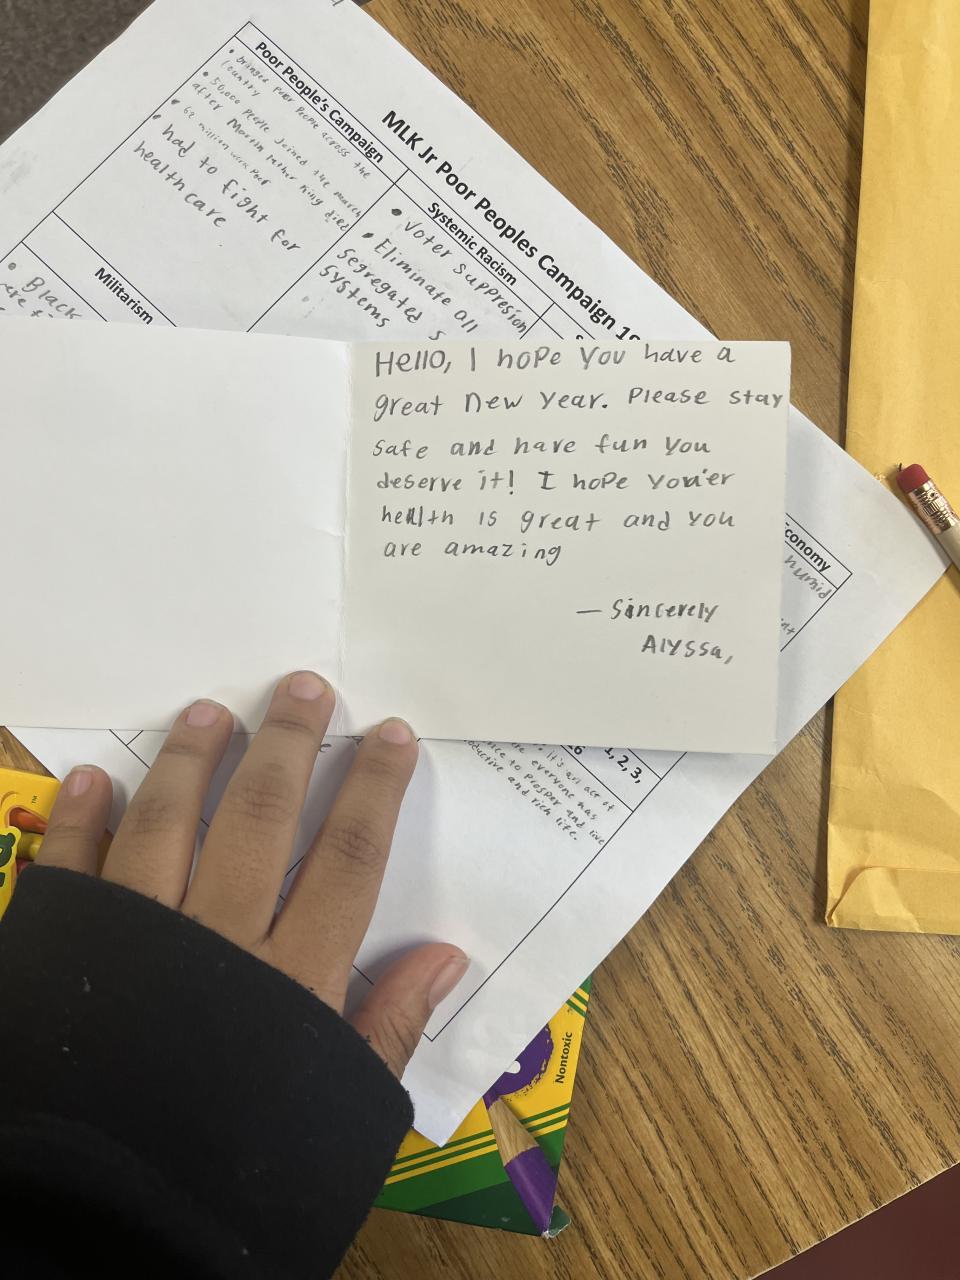 MLK Jr Poor Peoples Campaign
Poor People's Campaign
poor people across the
country
50,000 people joined the march
after Martin luther King died
62 million work poor
had to fight for
healthcare
Systemic Racism
Voter suppresion
Eliminate all
segregated s
systems
Militarism
Black
Economy
humid
Hello, I hope you have a
great new year. Please stay
safe and have fun you
deserve it! I hope you'er
health is great and you
are amazing
— Sincerely
Alyssa,
1, 2, 3,
it's an act of
everyone has
to prosper and live
and rich life.
Nontoxic